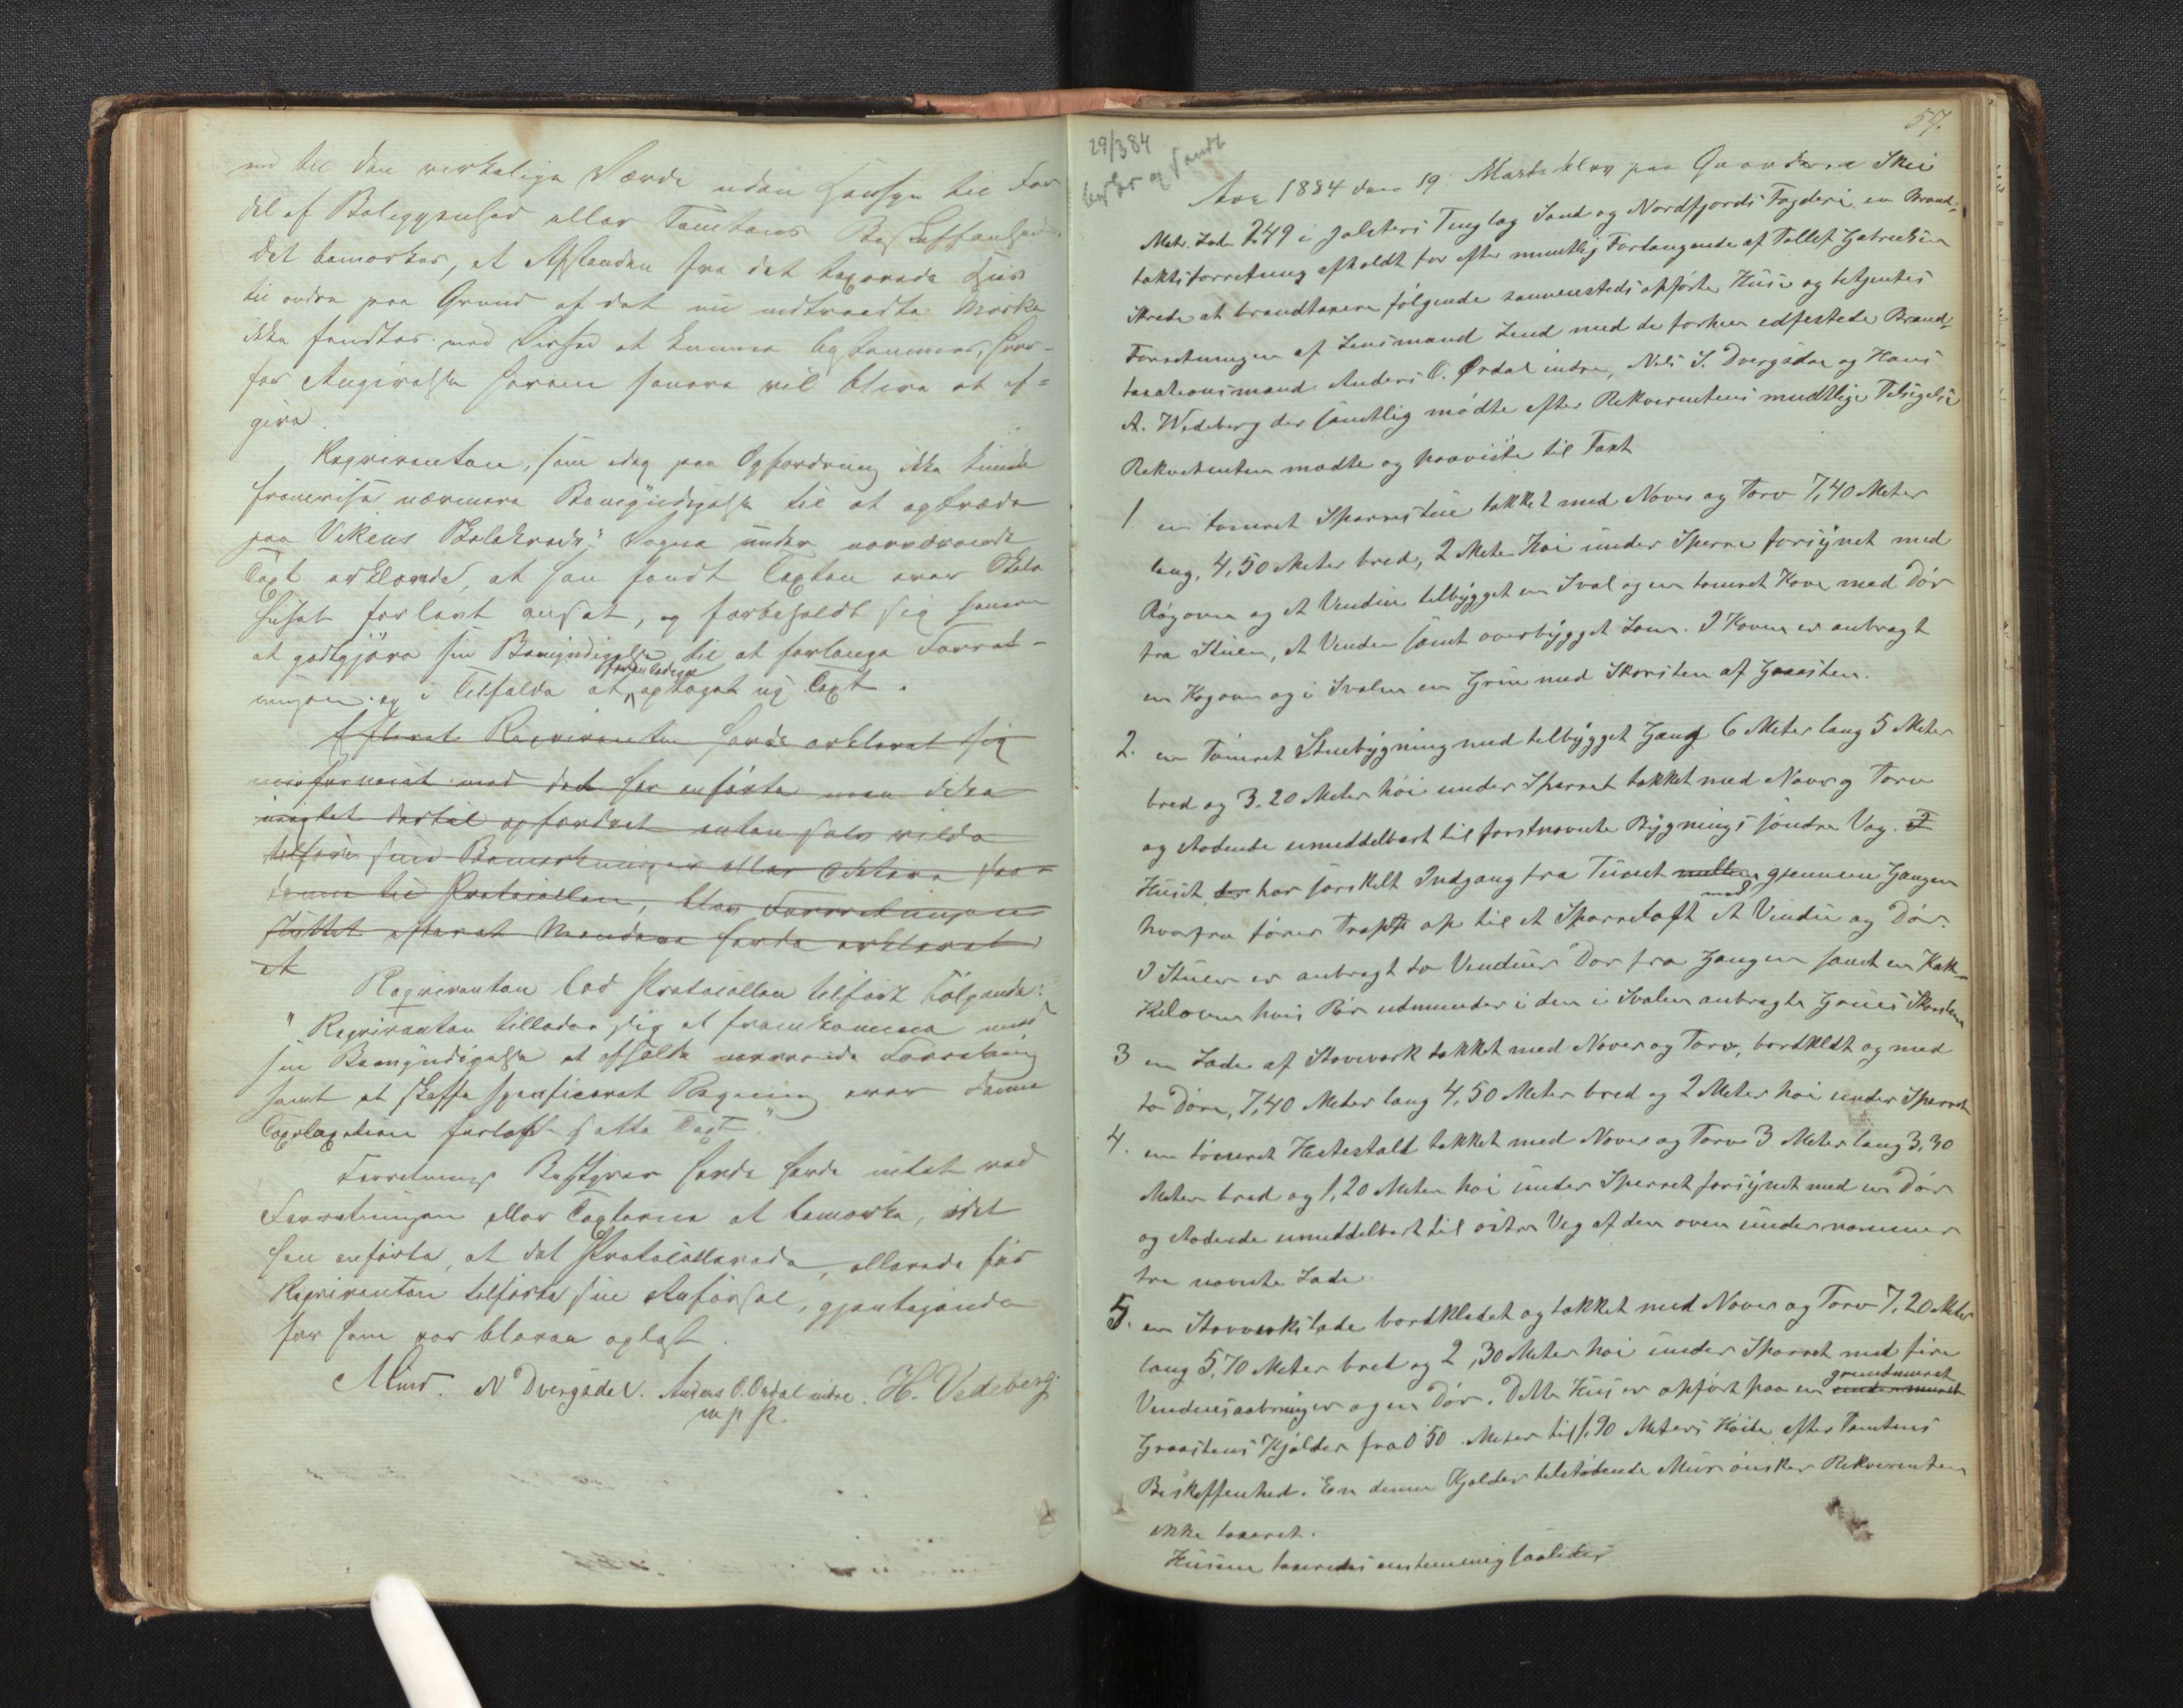 med til den virkelige Værdi uden Hensyn til For
del af Beliggenhed eller Tomtens Beskaffenhed.
Det bemærkes, at Afstanden fra det taxerede Hus
til andre paa Grund af det nu indtraadte Mørke
ikke fandtes med Sikkerhed at kunne bestemmes, hvor-
for Angivelse herom senere vil blive at af-
give.
Requirenten, som idag paa Opfordring ikke kunde
fremvise nærmere Bemyndigelse til at optræde
paa Vegne under nærværende
Taxt erklærede, at han fandt Taxten over Skole
huset for lavt ansat, og forbeholdt sig senere
at godtgjøre sin Bemyndigelse til at forlange Forret-
ningen og i Tilfælde at foranledige optaget ny Taxt.
Efterat Requirenten havde erklæret sig
misfornøiet med det her anførte men ikke
uagtet dertil opfordret enten selv vilde
tilføre sine Bemærkninger eller diktere saa-
danne til Protocollen, blev Forretningen
sluttet efterat Mændene havde erklæret
at
Requirenten lod Protocollen tilført Følgende:
"Requirenten tillader sig at fremkomme med
sin Bemyndigelse at afholde nærværende Forretning
samt at skaffe specificeret Regning over denne
Taxt."
Forretnings Bestyrer havde intet ved
Forretningen eller Taxterne at bemærke, idet
han anførte, at det Protocollerede, allerede før
Requirenten tilførte sin Anførsel, gjentagende
for ham var bleven oplæst.
N Dvergsdal. Anders O. Ordal indre. H. Vedeberg
m p P.
57.
29/3 84
Aar 1884 den 19 Marts blev paa Gaarden Skei
Matr. Lode 249 i Jølsters Tinglag Sønd og Nordfjords Fogderi en Brand-
taktsforretning afholdt for efter mundtlig Forlangende af Tollef Gabrielsen
Skrede at brandtaxere følgende sammesteds opførte Huse og betjentes
Forretningen af Lensmand Lund med de forhen edfestede Brand-
taxationsmænd Anders O. Ordal indre, Nils S. Dvergsdal og Hans
A. Wedeberg der samtlig mødte efter Rekvirentens mundtlige Tilsigelse
Rekvirenten mødte og paaviste til Taxt
1. en tømret Sparrestue tækket med Never og Torv 7,40 Meter
lang, 4,50 Meter bred, 2 Meter høi under Sperre forsynet med
Røgovn og et Vindue tilbygget en Sval og en tømret Kove med Dør
fra Stuen, et Vindue samt overbygget Lem. I Koven er anbragt
en Kogovn og i Svalen en Grue med Skorsten af Graasten.
2. en Tømret Stuebygning med tilbygget Gang 6 Meter lang 5 Meter
bred og 3.20 Meter høi under Sperret tækket med Never og Torv
og stødende umiddelbart til førstnævnte Bygnings søndre Væg. I
Huset der har særskilt Indgang fra Tunet mellem gjennem Gangen
hvorfra fører Trappe op til et Sparreloft med et Vindue og Dør.
I Stuen er anbragt to Vinduer Dør fra Gangen samt en Kak-
kelovn hvis Rør udmunder i den i Svalen anbragte Grues Skorsten
3 en Lade af Stavverk tækket med Never og Torv, bordklædt og med
to Døre, 7,40 Meter lang 4,50 Meter bred og 2 Meter høi under Sperret
4. en tømret Hestestald tækket med Never og Torv 3 Meter lang 3,30
Meter bred og 1,20 Meter høi under Sperret forsynet med en Dør
og stødende umiddelbart til østre Væg af den oven under nummer
tre nævnte Lade
5. en Stavverkslade bordklædet og tækket med Never og Torv 7,20 Meter
lang 5,70 Meter bred og 2,30 Meter høi under Sperret med fire
Vinduesaabninger og en Dør. Dette Hus er opført paa en undermuret grundmuret
Graastens Kjælder fra 0 50 Meter til 1,90 Meters Høide efter Tomtens
Beskaffenhed. En denne Kjælder tilstødende Mur ønsker Rekvirenten
ikke taxeret.
Husene taxeredes enstemmig saaledes